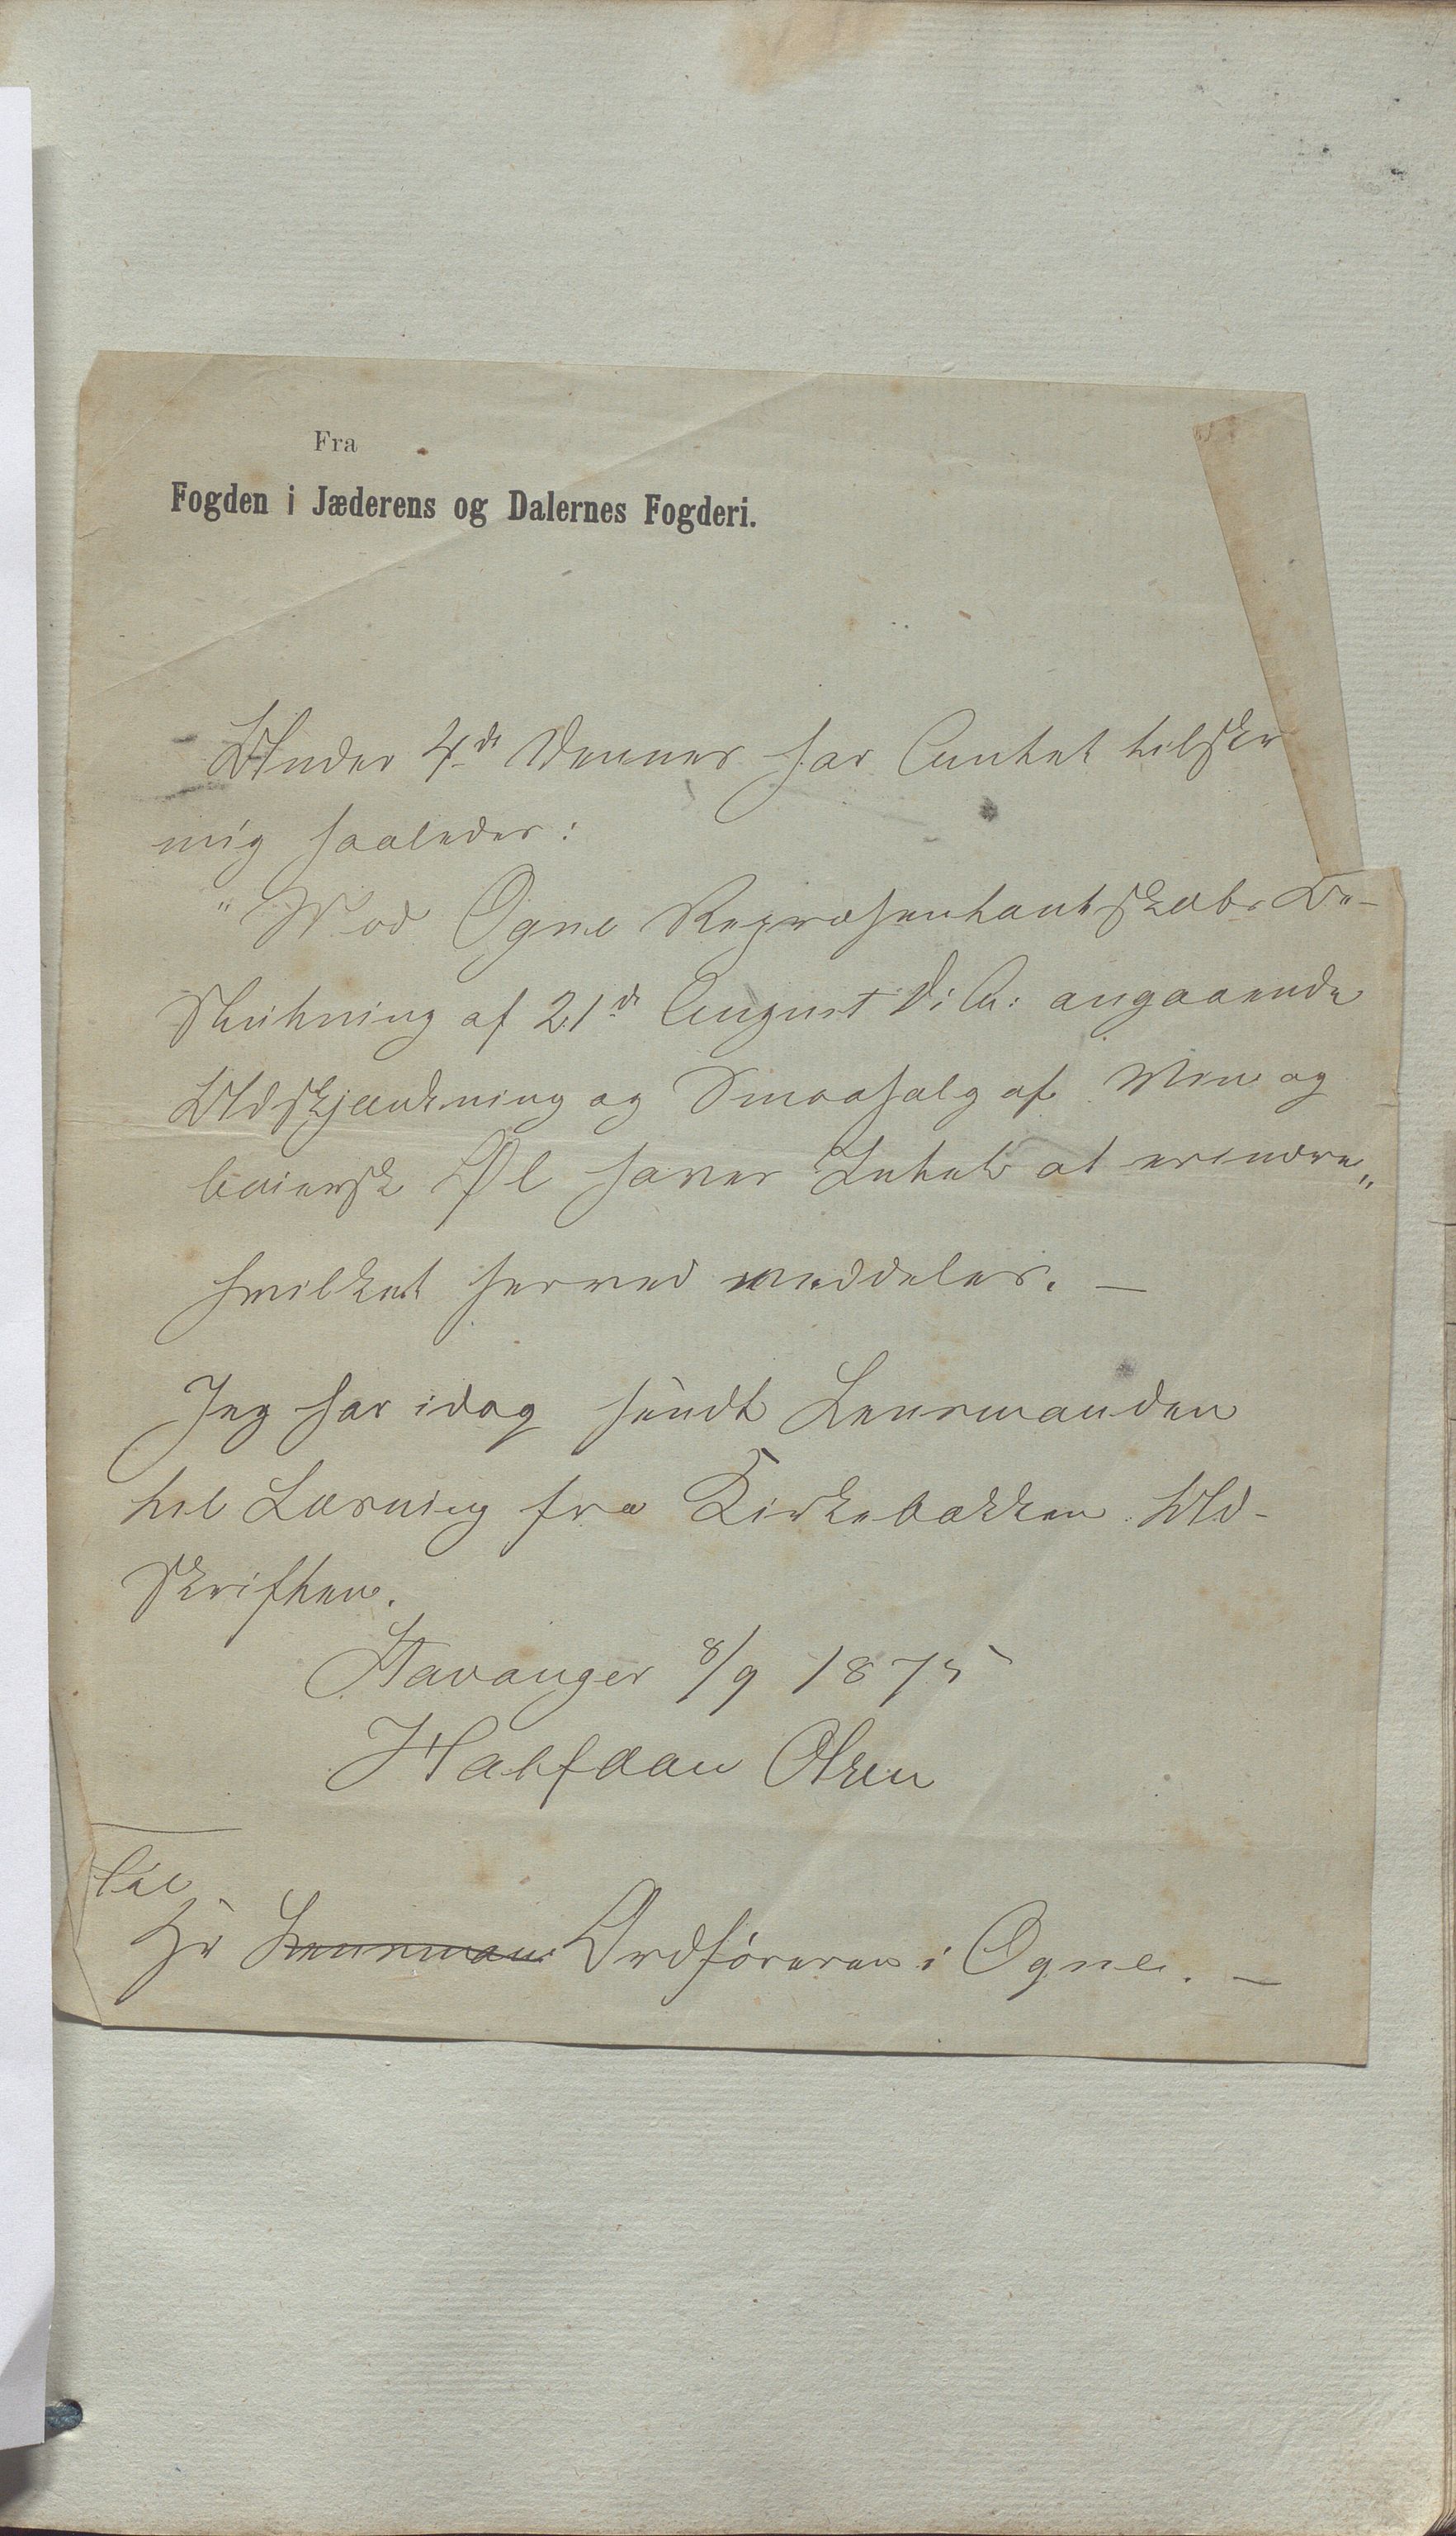 Fra
Fogden i Jæderens og Dalernes Fogderi.
Under 4de dennes har Amtet tilskr
mig saaledes:
"Mod Ogne Repræsentantskabs Be-
slutning af 21de August d: A: angaaende
Udskjænkning og Smaasalg af Viin og
baiersk Øl haves Intet at erindre"
hvilket herved meddeles. —
Jeg har idag sendt Lensmanden
til Læsning fra Kirkebakken Ud-
skriften.
Stavanger 8/9 1875
Halfdan Olsen
Til
Hr Lensman Ordføreren i Ogne. —